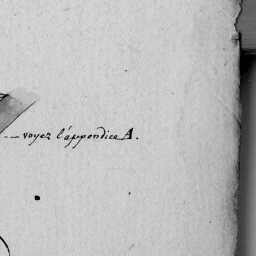 -- voyez l'appendice A.